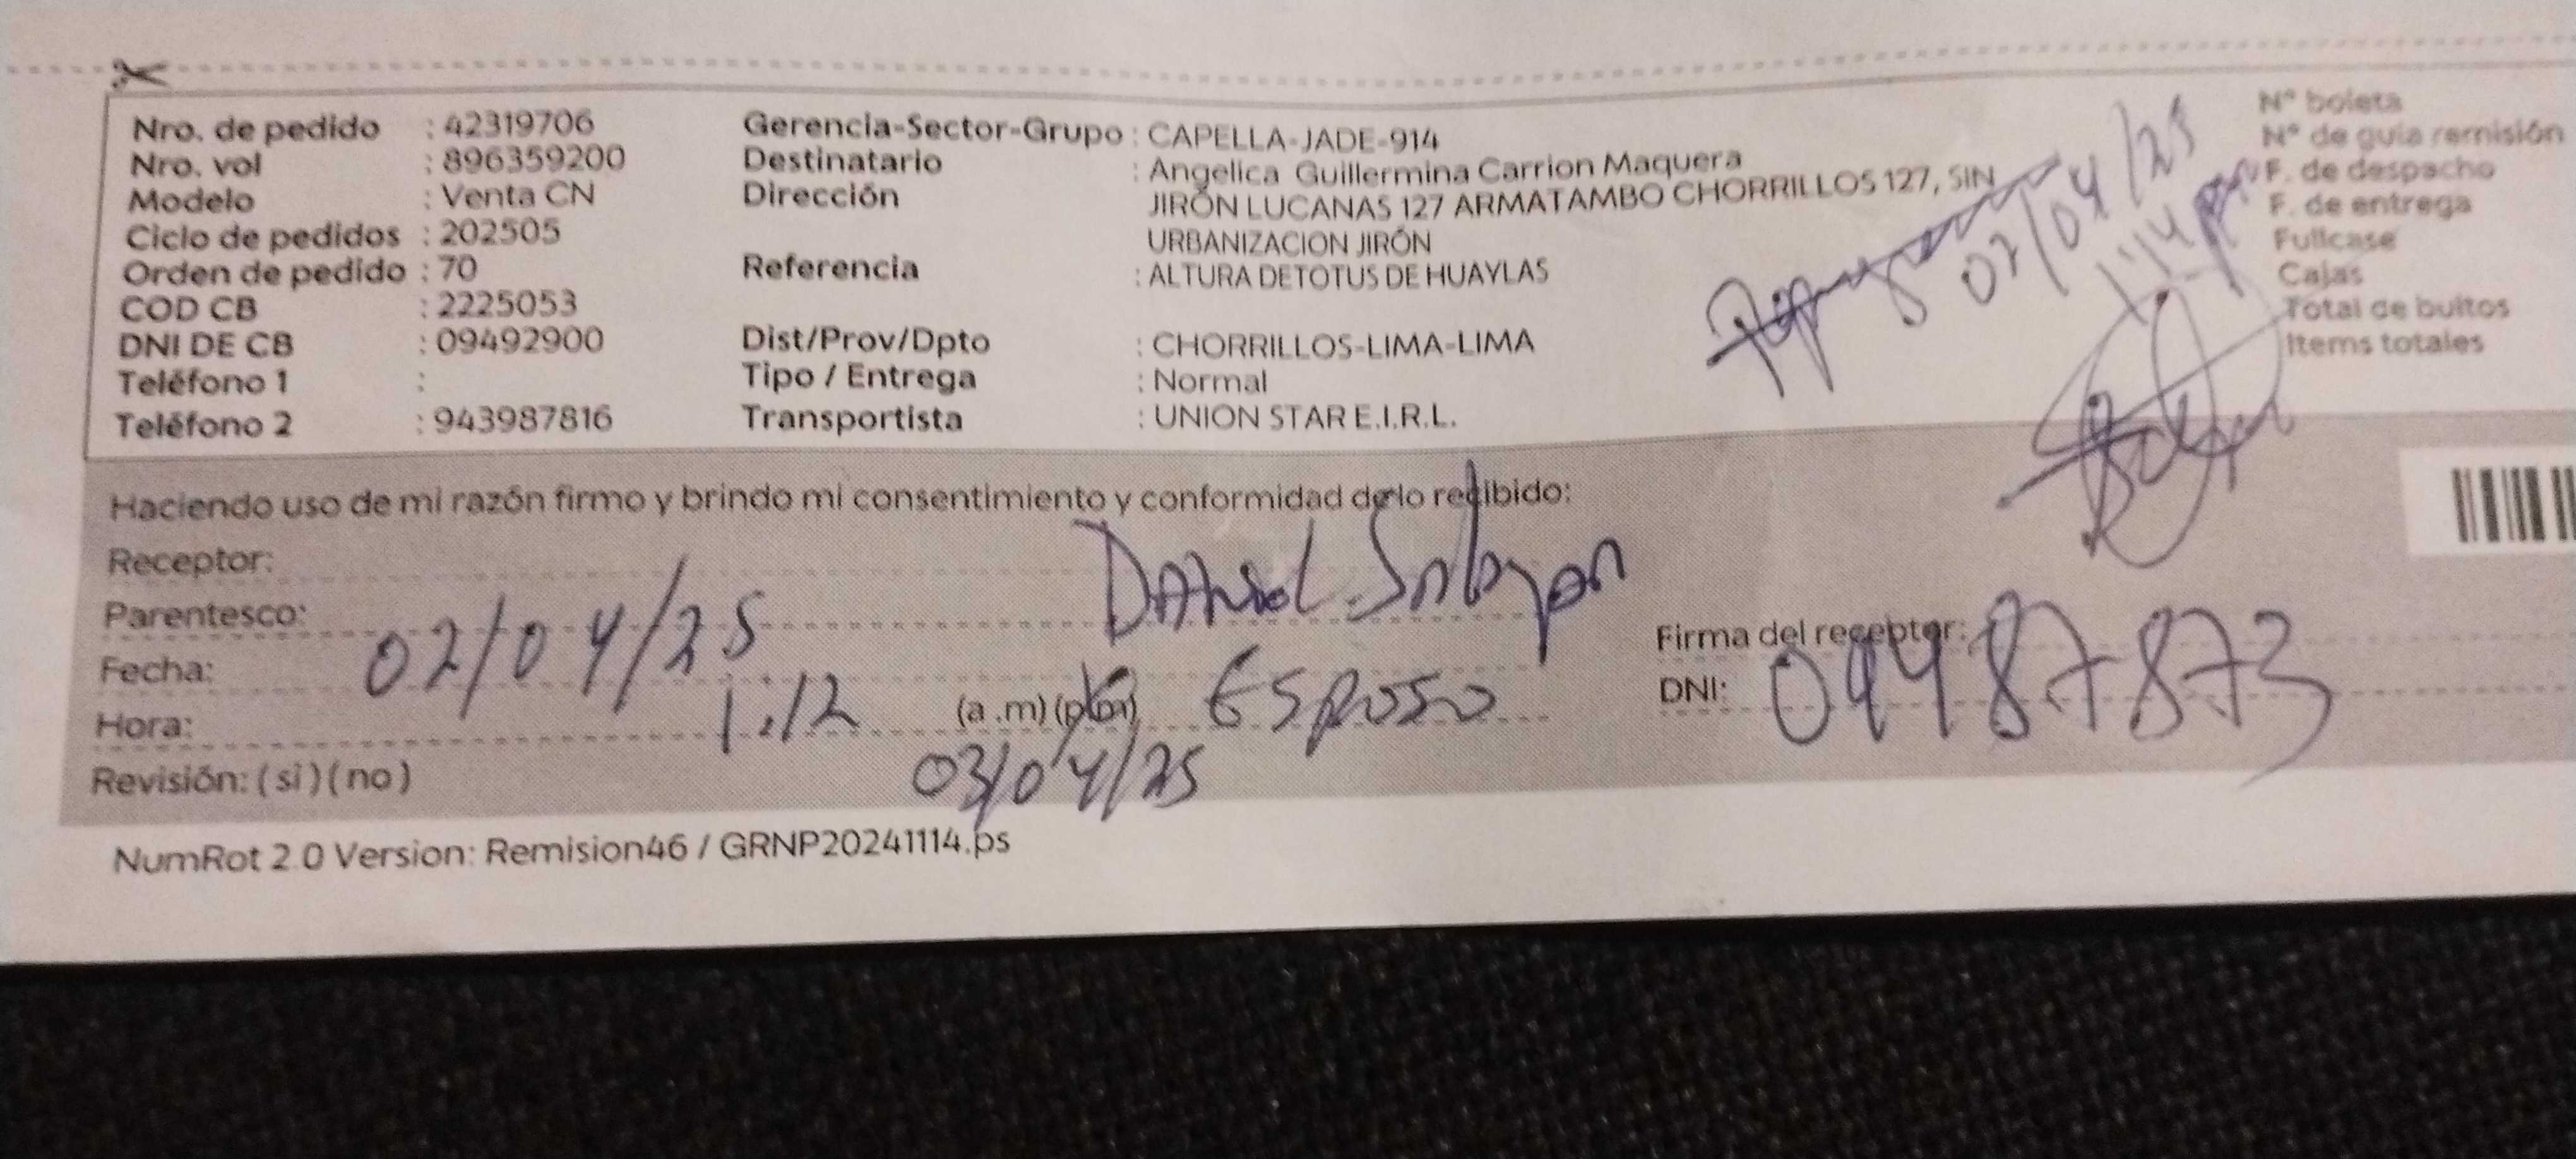 Nro. de pedido : 42319706
Nro. vol : 896359200
Modelo : Venta CN
Ciclo de pedidos : 202505
Orden de pedido : 70
COD CB : 2225053
DNI DE CB : 09492900
Teléfono 1 :
Teléfono 2 : 943987816
Gerencia-Sector-Grupo : CAPELLA-JADE-914
Destinatario : Angelica Guillermina Carrion Maquera
Dirección JIRÓN LUCANAS 127 ARMATAMBO CHORRILLOS 127, SIN
URBANIZACION JIRÓN
Referencia : ALTURA DETOTUS DE HUAYLAS
Dist/Prov/Dpto : CHORRILLOS-LIMA-LIMA
Tipo / Entrega : Normal
Transportista : UNION STAR E.I.R.L.
02/04/25
1:14 pm
N° boleta
N° de guía remisión
F. de despacho
F. de entrega
Fullcase
Cajas
Total de bultos
Items totales
Haciendo uso de mi razón firmo y brindo mi consentimiento y conformidad de lo recibido:
Receptor:
Parentesco:
Fecha: 02/04/25
Hora: 1:12 (a .m) (p.m)
Revisión: ( si ) ( no )
Daniel
Esposo
03/04/25
Firma del receptor:
DNI: 09487873
NumRot 2.0 Version: Remision46 / GRNP20241114.ps